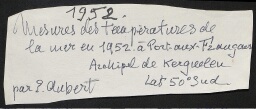 1952.
Mesures des températures de
la mer en 1952 à Port-aux-Français
Archipel de Kerguelen
par P. Aubert Lat 50° Sud